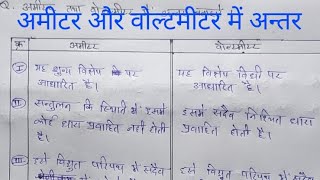 अमीटर और वोल्टमीटर में अन्तर
क्र० अमीटर वोल्टमीटर
I यह शून्य विक्षेप पर यह विक्षेप विधी पर
आधारित है। आधारित है।
II सन्तुलन की स्थिति में इसमें इसमें सदैव निश्चित धारा
कोई धारा प्रवाहित नहीं होती प्रवाहित होती है।
है।
III इसे विद्युत परिपथ में सदैव इसे विद्युत परिपथ में सदैव